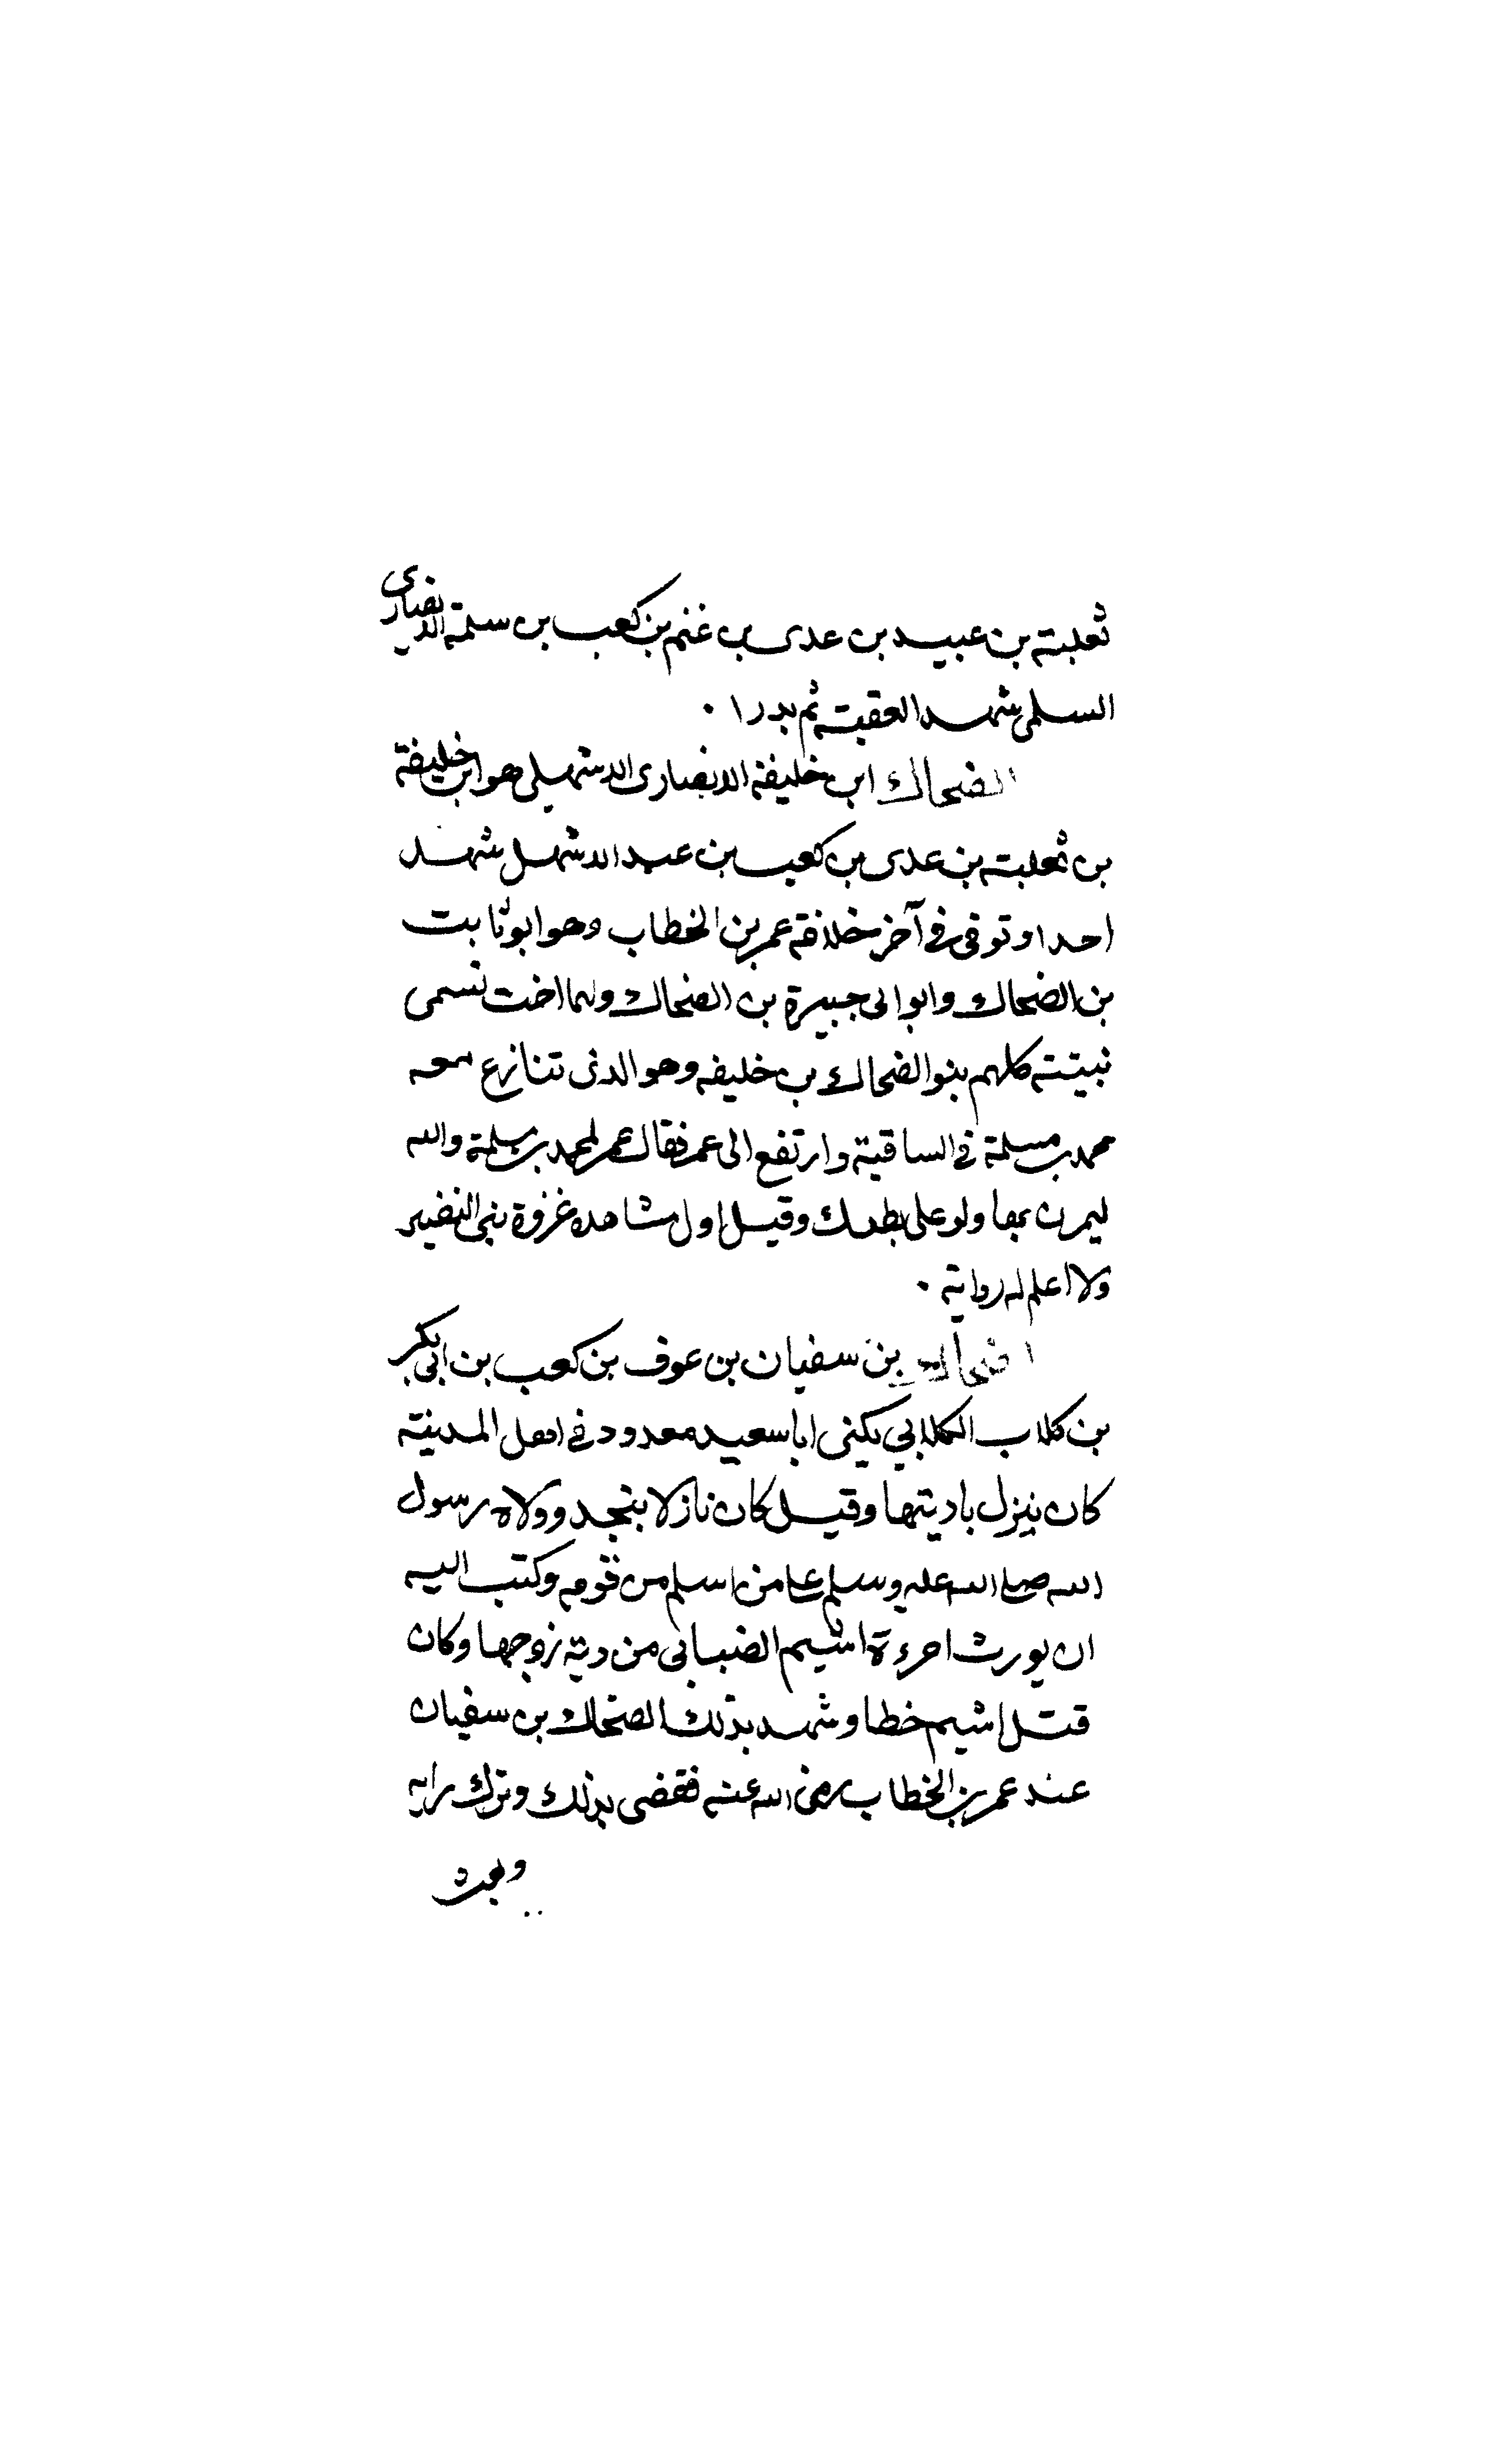 ثعلبة بن عبيد بن عدى بن غنم بن كعب بن سلمة الانصارى
السلمى شهد العقبة ثم بدرا ٠
الضحاك ابن خليفة الانصارى الاشهلى هو ابن خليفة
بن ثعلبة بن عدى بن كعب بن عبد الاشهل شهد
احدا وتوفى فى آخر خلافة عمر بن الخطاب وهو ابو ثابت
بن الضحاك وابو ابى جبيرة بن الضحاك ولهما اخت تسمى
نبيتة كلهم بنو الضحاك بن خليفه وهو الذى تنازع معه
محمد بن مسلمة فى الساقية وارتفع الى عمر فقال عمر لمحمد بن مسلمة والله
ليمرن بها ولو على بطنك وقيل اول مشاهده غزوة بنى النضير
ولا اعلم له رواية ٠
الضحاك بن سفيان بن عوف بن كعب بن ابى بكر
بن كلاب الكلابي يكنى ابا سعيد معدود فى اهل المدينة
كان ينزل باديتها وقيل كان نازلا بنجد وولاه رسول
الله صلى الله عليه وسلم على من اسلم من قومه وكتب اليه
ان يورث امرءة اشيم الضبابى من دية زوجها وكان
قتل اشيم خطا وشهد بذلك الضحاك بن سفيان
عند عمر بن الخطاب رضى الله عنه فقضى بذلك وترك رايه
وبعث